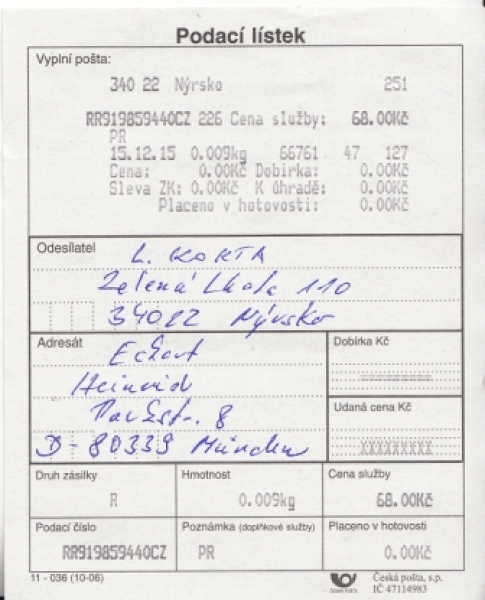 Podací lístek
Vyplní pošta:
340 22 Nýrsko 251
RR919859440CZ 226 Cena služby: 68.00Kč
PR
15.12.15 0.009kg 66761 47 127
Cena: 0.00Kč Dobírka: 0.00Kč
Sleva ZK: 0.00Kč K úhradě: 0.00Kč
Placeno v hotovosti: 0.00Kč
Odesílatel
L. KORTA
Zelená Lhota 110
34022 Nýrsko
Adresát
Eckart
Heinrich
8
D-80339 München
Dobírka Kč
========
Udaná cena Kč
XXXXXXXXX
Druh zásilky
R
Hmotnost
0.009kg
Cena služby
68.00Kč
Podací číslo
RR919859440CZ
Poznámka (doplňkové služby)
PR
Placeno v hotovosti
0.00Kč
11 - 036 (10-06)
Česká pošta, s.p.
IČ 47114983